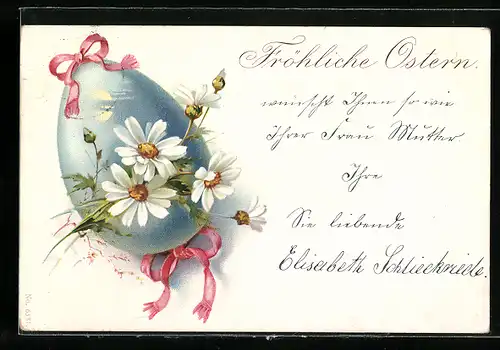 Fröhliche Ostern.
wünscht Ihnen so wie
Ihrer Frau Mutter
Ihre
Sie liebende
Elisabeth Schlieckriede.